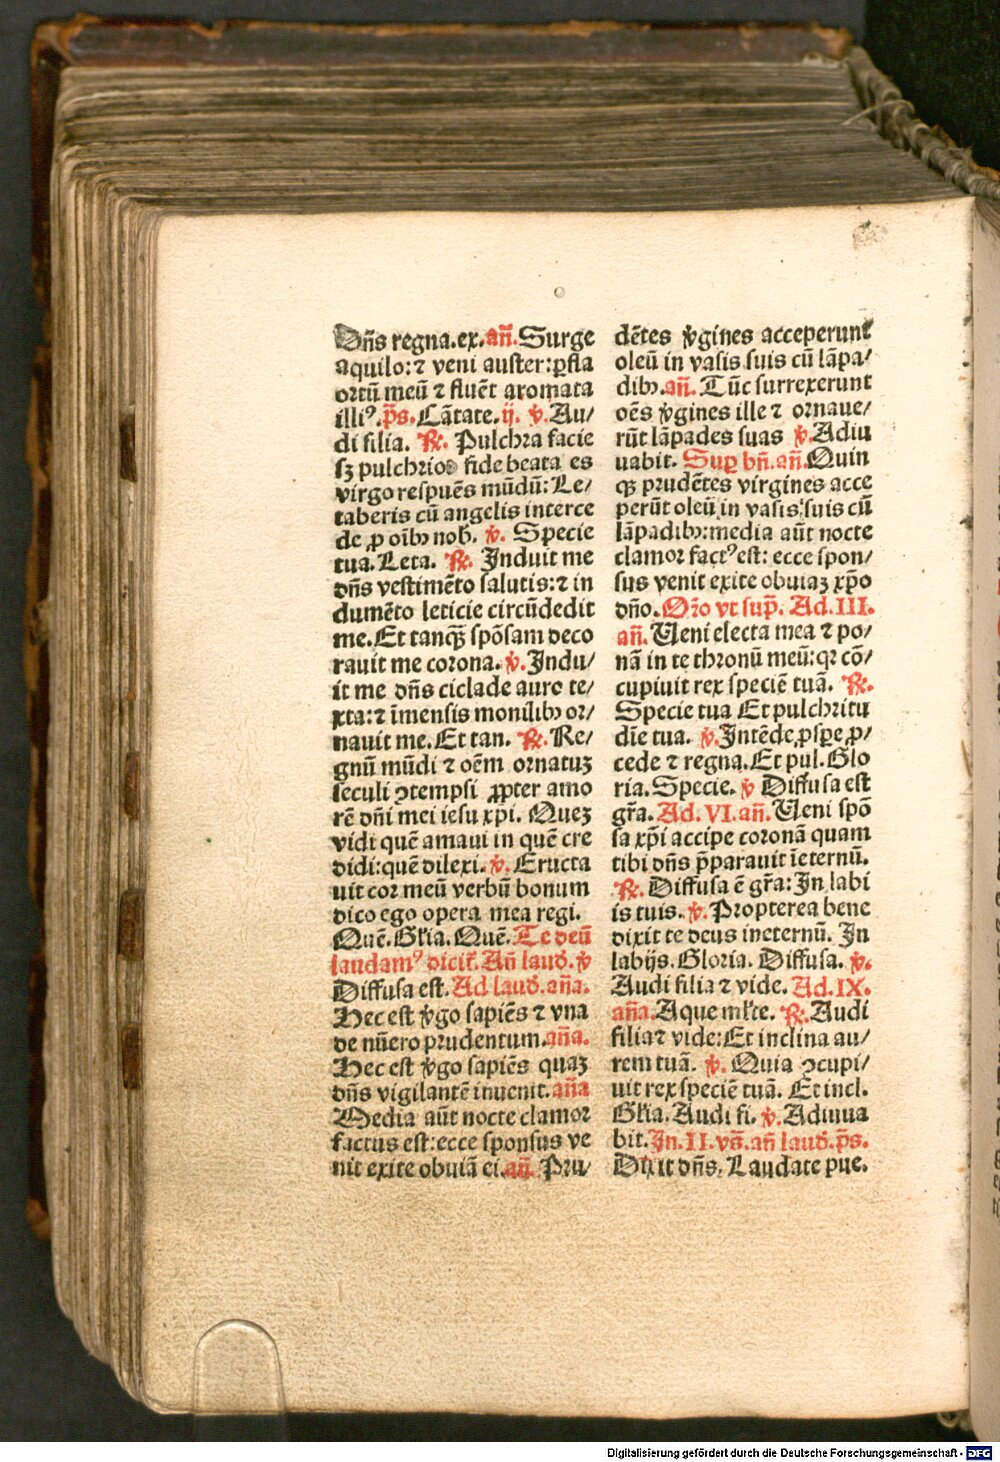 Dn̄s regna.ex.an̄.Surge
aquilo:⁊ veni auster:ꝑfla
ortū meū ⁊ fluēt aromata
illiꝰ.p̄s.Cātate.ij. ℣.Au/
di filia. ℟. Pulchra facie
sꝫ pulchrior fide beata es
virgo respuēs mūdū: Le/
taberis cū angelis interce
de ꝓ oībꝫ nob̄. ℣. Specie
tua.Leta. ℟. Induit me
dn̄s vestimēto salutis:⁊ in
dumēto leticie circūdedit
me.Et tanqꝫ̄ spōsam deco
rauit me corona.℣.Indu/
it me dn̄s ciclade auro te/
xta:⁊ īmensis monilibꝫ or/
nauit me.Et tan. ℟.Re/
gnū mūdi ⁊ oēm ornatuꝫ
seculi ꝯtempsi ꝓpter amo
rē dn̄i mei iesu xp̄i. Queꝫ
vidi quē amaui in quē cre
didi:quē dilexi.℣.Eructa
uit cor meū verbū bonum
dico ego opera mea regi.
Quē.Gl̄ia.Quē.Te deū
laudamꝰ dicit̄.An̄ laud̄.℣
Diffusa est.Ad laud̄.an̄a.
Hec est v̄go sapiēs ⁊ vna
de nūero prudentum.an̄a.
Hec est v̄go sapiēs quaꝫ
dn̄s vigilantē inuenit.an̄a
Media aūt nocte clamor
factus est:ecce sponsus ve
nit exite obuiā ei.an̄.Pru/
dētes v̄gines acceperunt
oleū in vasis suis cū lāpa/
dibꝫ.an̄. Tūc surrexerunt
oēs v̄gines ille ⁊ ornaue/
rūt lāpades suas ℣.Adiu
uabit. Suꝑ bn̄.an̄.Quin
qꝫ prudētes virgines acce
perūt oleū in vasis suis cū
lāpadibꝫ:media aūt nocte
clamor factꝰ est: ecce spon/
sus venit exite obuiaꝫ xp̄o
dn̄o.Or̄o vt sup̄. Ad.III.
an̄.Ueni electa mea ⁊ po/
nā in te thronū meū:qꝛ cō/
cupiuit rex speciē tuā. ℟.
Specie tua Et pulchritu
dīe tua. ℣.Intēde ꝓsꝑe ꝓ/
cede ⁊ regna.Et pul.Glo
ria.Specie.℣ Diffusa est
gr̄a.Ad.VI.an̄.Ueni spō
sa xp̄i accipe coronā quam
tibi dn̄s p̄parauit īeternū.
℟.Diffusa ē gr̄a:In labi
is tuis.℣.Propterea bene
dixit te deus ineternū. In
labijs.Gloria. Diffusa. ℣.
Audi filia ⁊ vide.Ad.IX.
an̄a.Aque ml̄te. ℟.Audi
filia⁊ vide:Et inclina au/
rem tuā. ℣. Quia ꝯcupi/
uit rex speciē tuā. Et incl.
Gl̄ia.Audi fi. ℣.Adiuua
bit.In.II.vs̄.an̄ laud̄.p̄s.
Dixit dn̄s. Laudate pue.
Digitalisierung gefördert durch die Deutsche Forschungsgemeinschaft - DFG